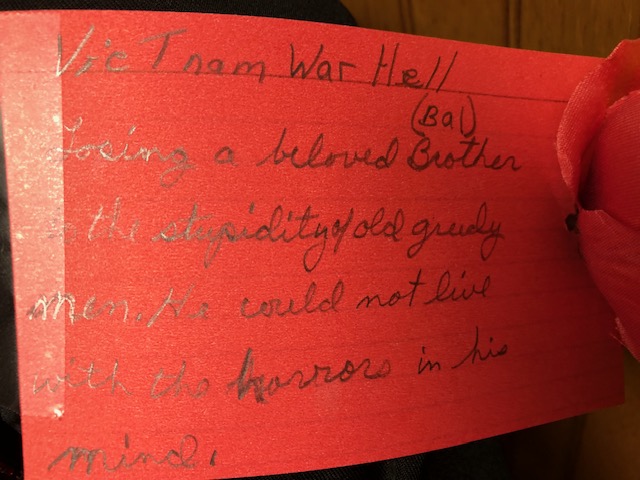 VieTnam War Hell
(Bal)
Losing a beloved Brother
to the stupidity of old greedy
men. He could not live
with the horrors in his
mind.